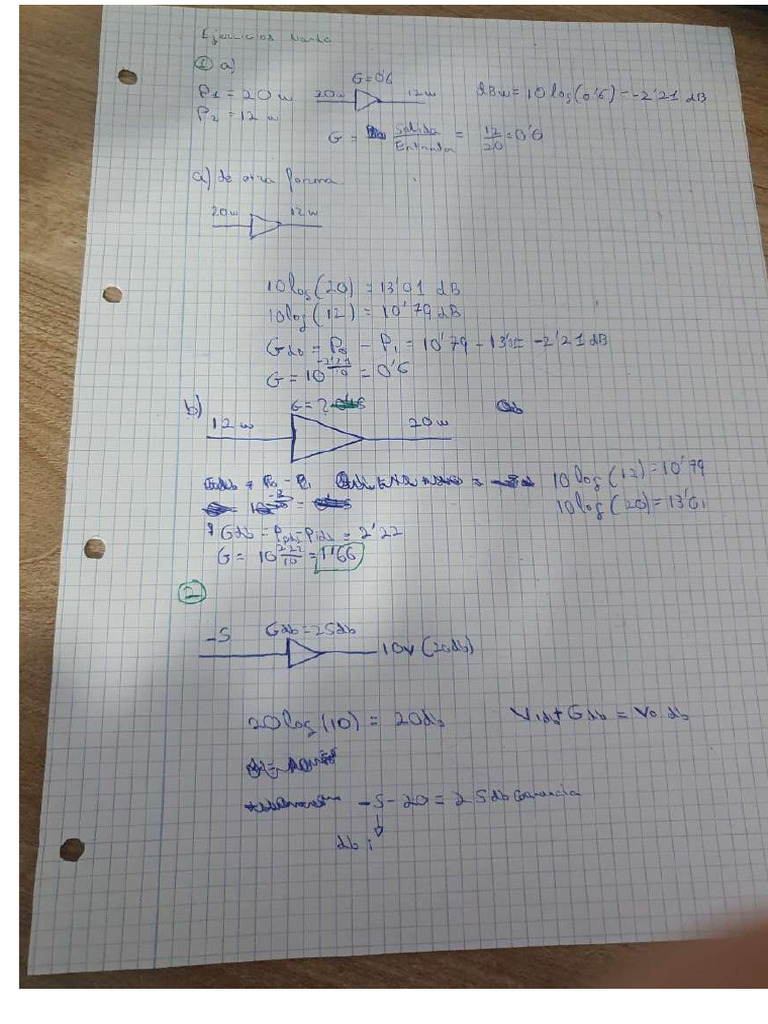 Ejercicios
① a)
G=0'6
P1 = 20 w 20w 12w dBw = 10 log(0'6) = -2'21 dB
P2 = 12 w
G = Salida/Entrada = 12/20 = 0'6
a) de otra forma
20w 12w
10 log(20) = 13'01 dB
10 log(12) = 10'79 dB
Gdb = Po - P1 = 10'79 - 13'01 = -2'21 dB
G = 10^(-2'21/10) = 0'6
b) G = ?
12 w 20 w
10 log(12) = 10'79
10 log(20) = 13'01
Gdb = Podb - Pidb = 2'22
G = 10^(2'22/10) = 1'66
②
-5 Gdb = 25db 10v (20db)
20 log(10) = 20db Vidb + Gdb = Vo db
-5 - 20 = 25 db Ganancia
db i